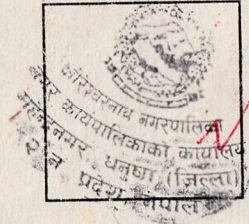 क्षीरेश्वरनाथ नगरपालिका
नगर कार्यपालिकाको कार्यालय
महेन्द्रनगर, धनुषा (जिल्ला)
२ नं प्रदेश, नेपाल